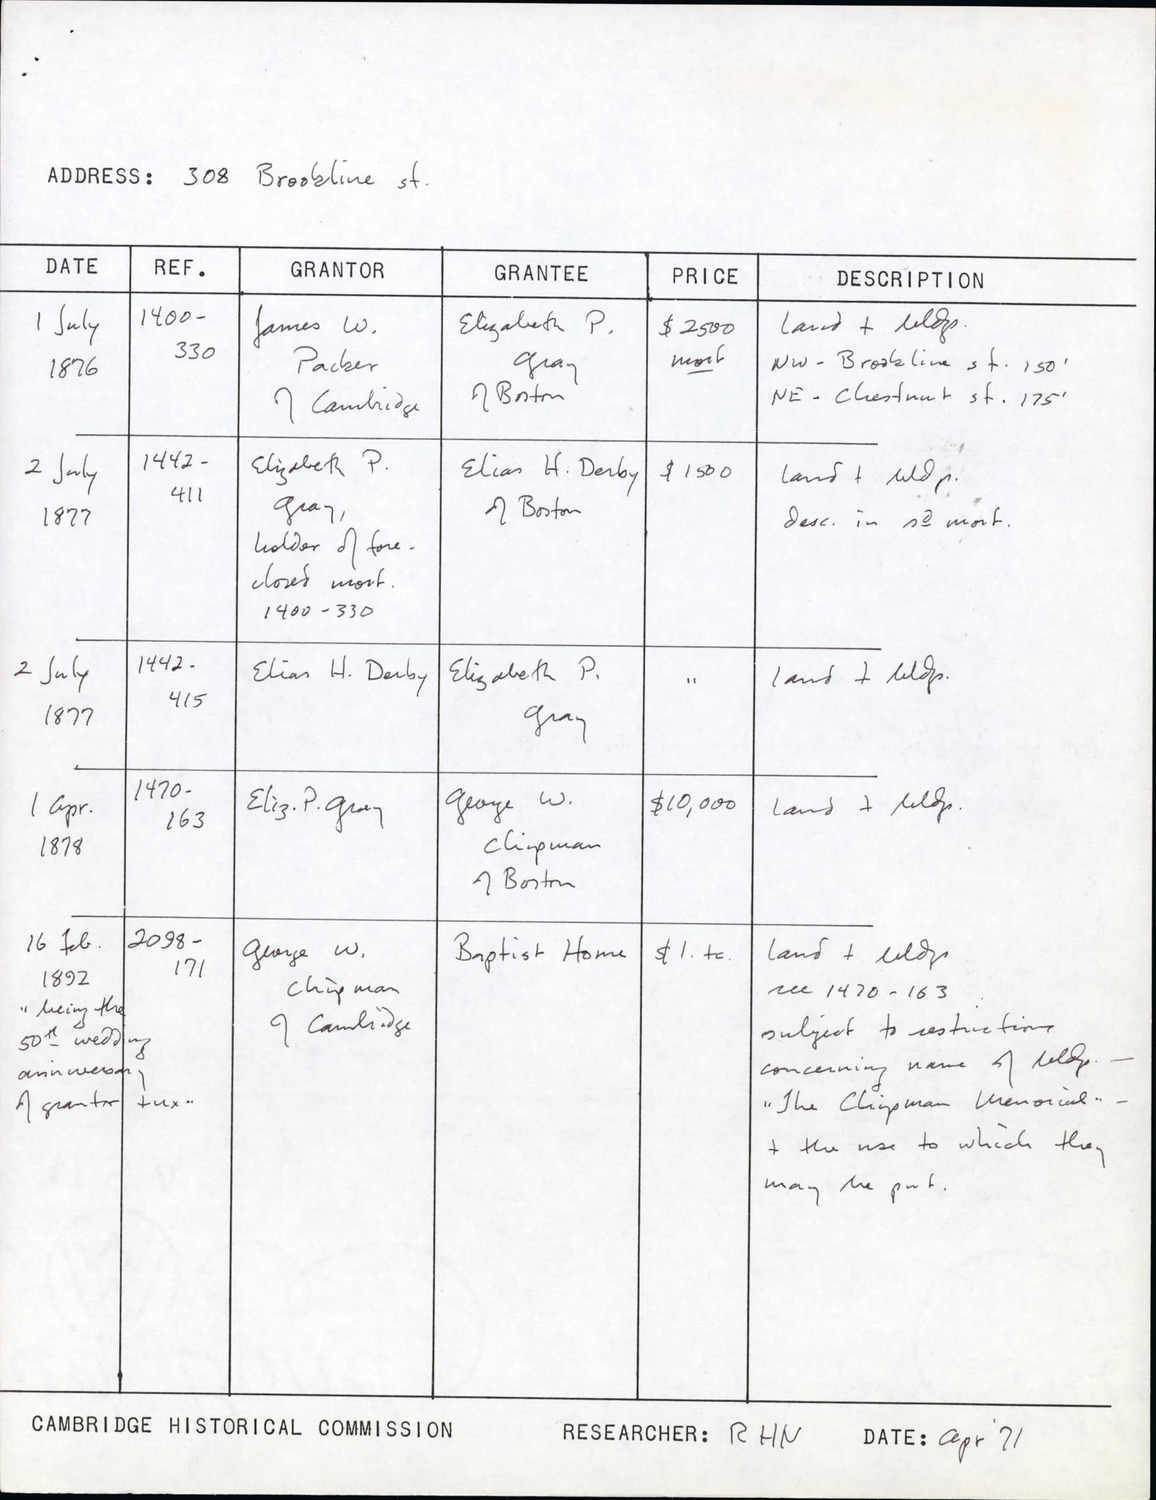 ADDRESS: 308 Brookline st.
DATE REF. GRANTOR GRANTEE PRICE DESCRIPTION
1 July
1876
1400-
330
James W.
Packer
of Cambridge
Elizabeth P.
Gray
of Boston
$2500
mort
land + bldgs.
NW - Brookline st. 150'
NE - Chestnut st. 175'
2 July
1877
1442-
411
Elizabeth P.
Gray,
holder of fore-
closed mort.
1400-330
Elias H. Derby
of Boston
$1500
land + bldgs.
desc. in sd mort.
2 July
1877
1442-
415
Elias H. Derby
Elizabeth P.
Gray
"
land + bldgs.
1 Apr.
1878
1470-
163
Eliz. P. Gray
George W.
Chipman
of Boston
$10,000
land + bldgs.
16 Feb.
1892
"being the
50th wedding
anniversary
of grantor + ux"
2098-
171
George W.
Chipman
of Cambridge
Baptist Home
$1. tc.
land + bldgs
see 1470-163
subject to restrictions
concerning name of bldgs. —
"The Chipman Memorial" -
+ the use to which they
may be put.
CAMBRIDGE HISTORICAL COMMISSION RESEARCHER: RHN DATE: Apr '71